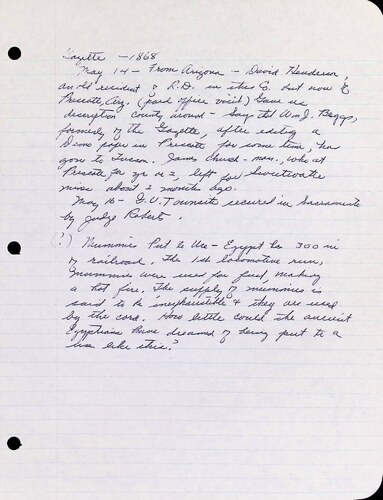 Gazette - 1868
May 14 - From Arizona - David Henderson,
an old resident of R.B. in this Co. but now of
Prescott, Ariz. (paid office visit) Gave us
description county around - Says that Wm J. Beggs,
formerly of the Gazette, after editing a
Demo paper in Prescott for some time, has
gone to Tucson. James Church - man, who at
Prescott for yr or 2, left for Sweetwater
mine about 2 months ago.
May 16 - G.V. Townsite secured in Sacramento
by Judge Roberts.
(!) Mummies Put to Use - Egypt has 300 mi
of railroad. The 1st locomotive run,
mummies were used for fuel, making
a hot fire. The supply of mummies is
said to be inexhaustible & they are used
by the cord. How little could the ancient
Egyptians have dreamed of being put to a
use like this?